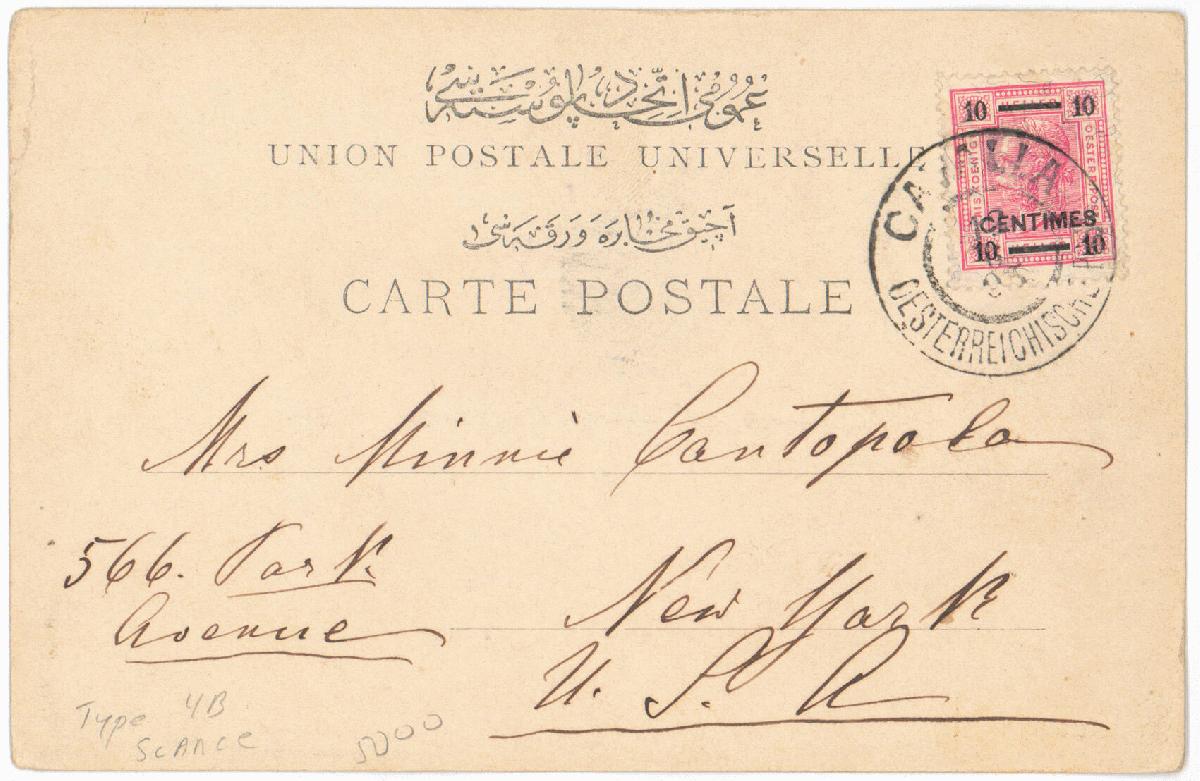 عمومی اتحاد پوسته سی
UNION POSTALE UNIVERSELLE
آچیق مخابره ورقه سی
CARTE POSTALE
10 10
CENTIMES
10 10
OESTERREICHISCHE
Mrs Minnie Cantopola
566. Park
Avenue
New York
U. S. A
Type 4B
SCANCE
5000